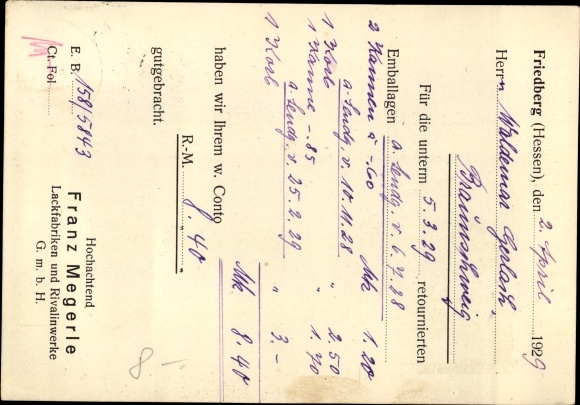 Friedberg (Hessen), den 2. April 1929
Herrn Waldemar Gerlach,
Braunschweig
Für die unterm 5. 3. 29 retournierten
Emballagen a. Sendg. v. 6. 7. 28
2 Kannen à -.60 Mk 1.20
a. Sendg. v. 10. 11. 28
1 Korb " 2.50
1 Kanne -.85 " 1.70
a. Sendg. v. 25. 2. 29
1 Korb " 3.-
Mk. 8.40
haben wir Ihrem w. Conto
R.-M. 8.40
gutgebracht.
Hochachtend
E. B. 158/5843 Franz Megerle
Ct. Fol Lackfabriken und Rivalinwerke
G. m. b. H.
8